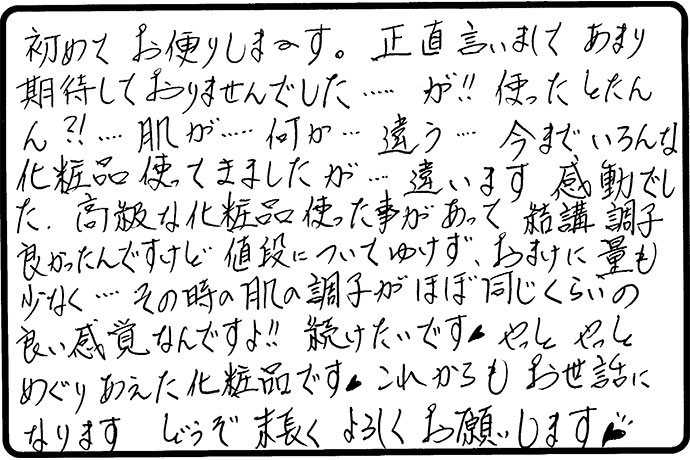 初めて お便りしま〜す。 正直言いまして あまり
期待しておりませんでした ‥‥‥ が!! 使ったとたん
ん?!‥‥ 肌が‥‥‥ 何か‥‥ 違う‥‥ 今まで、いろんな
化粧品使ってきましたが‥‥ 違います 感動でし
た. 高級な化粧品使った事があって 結講 調子
良かったんですけど 値段についてゆけず、おまけに量も
少なく‥‥ その時の肌の調子がほぼ同じくらいの
良い感覚なんですよ!! 続けたいです♥ やっと やっと
めぐりあえた化粧品です♥ これからも お世話に
なります どうぞ 末長く よろしく お願いします♥